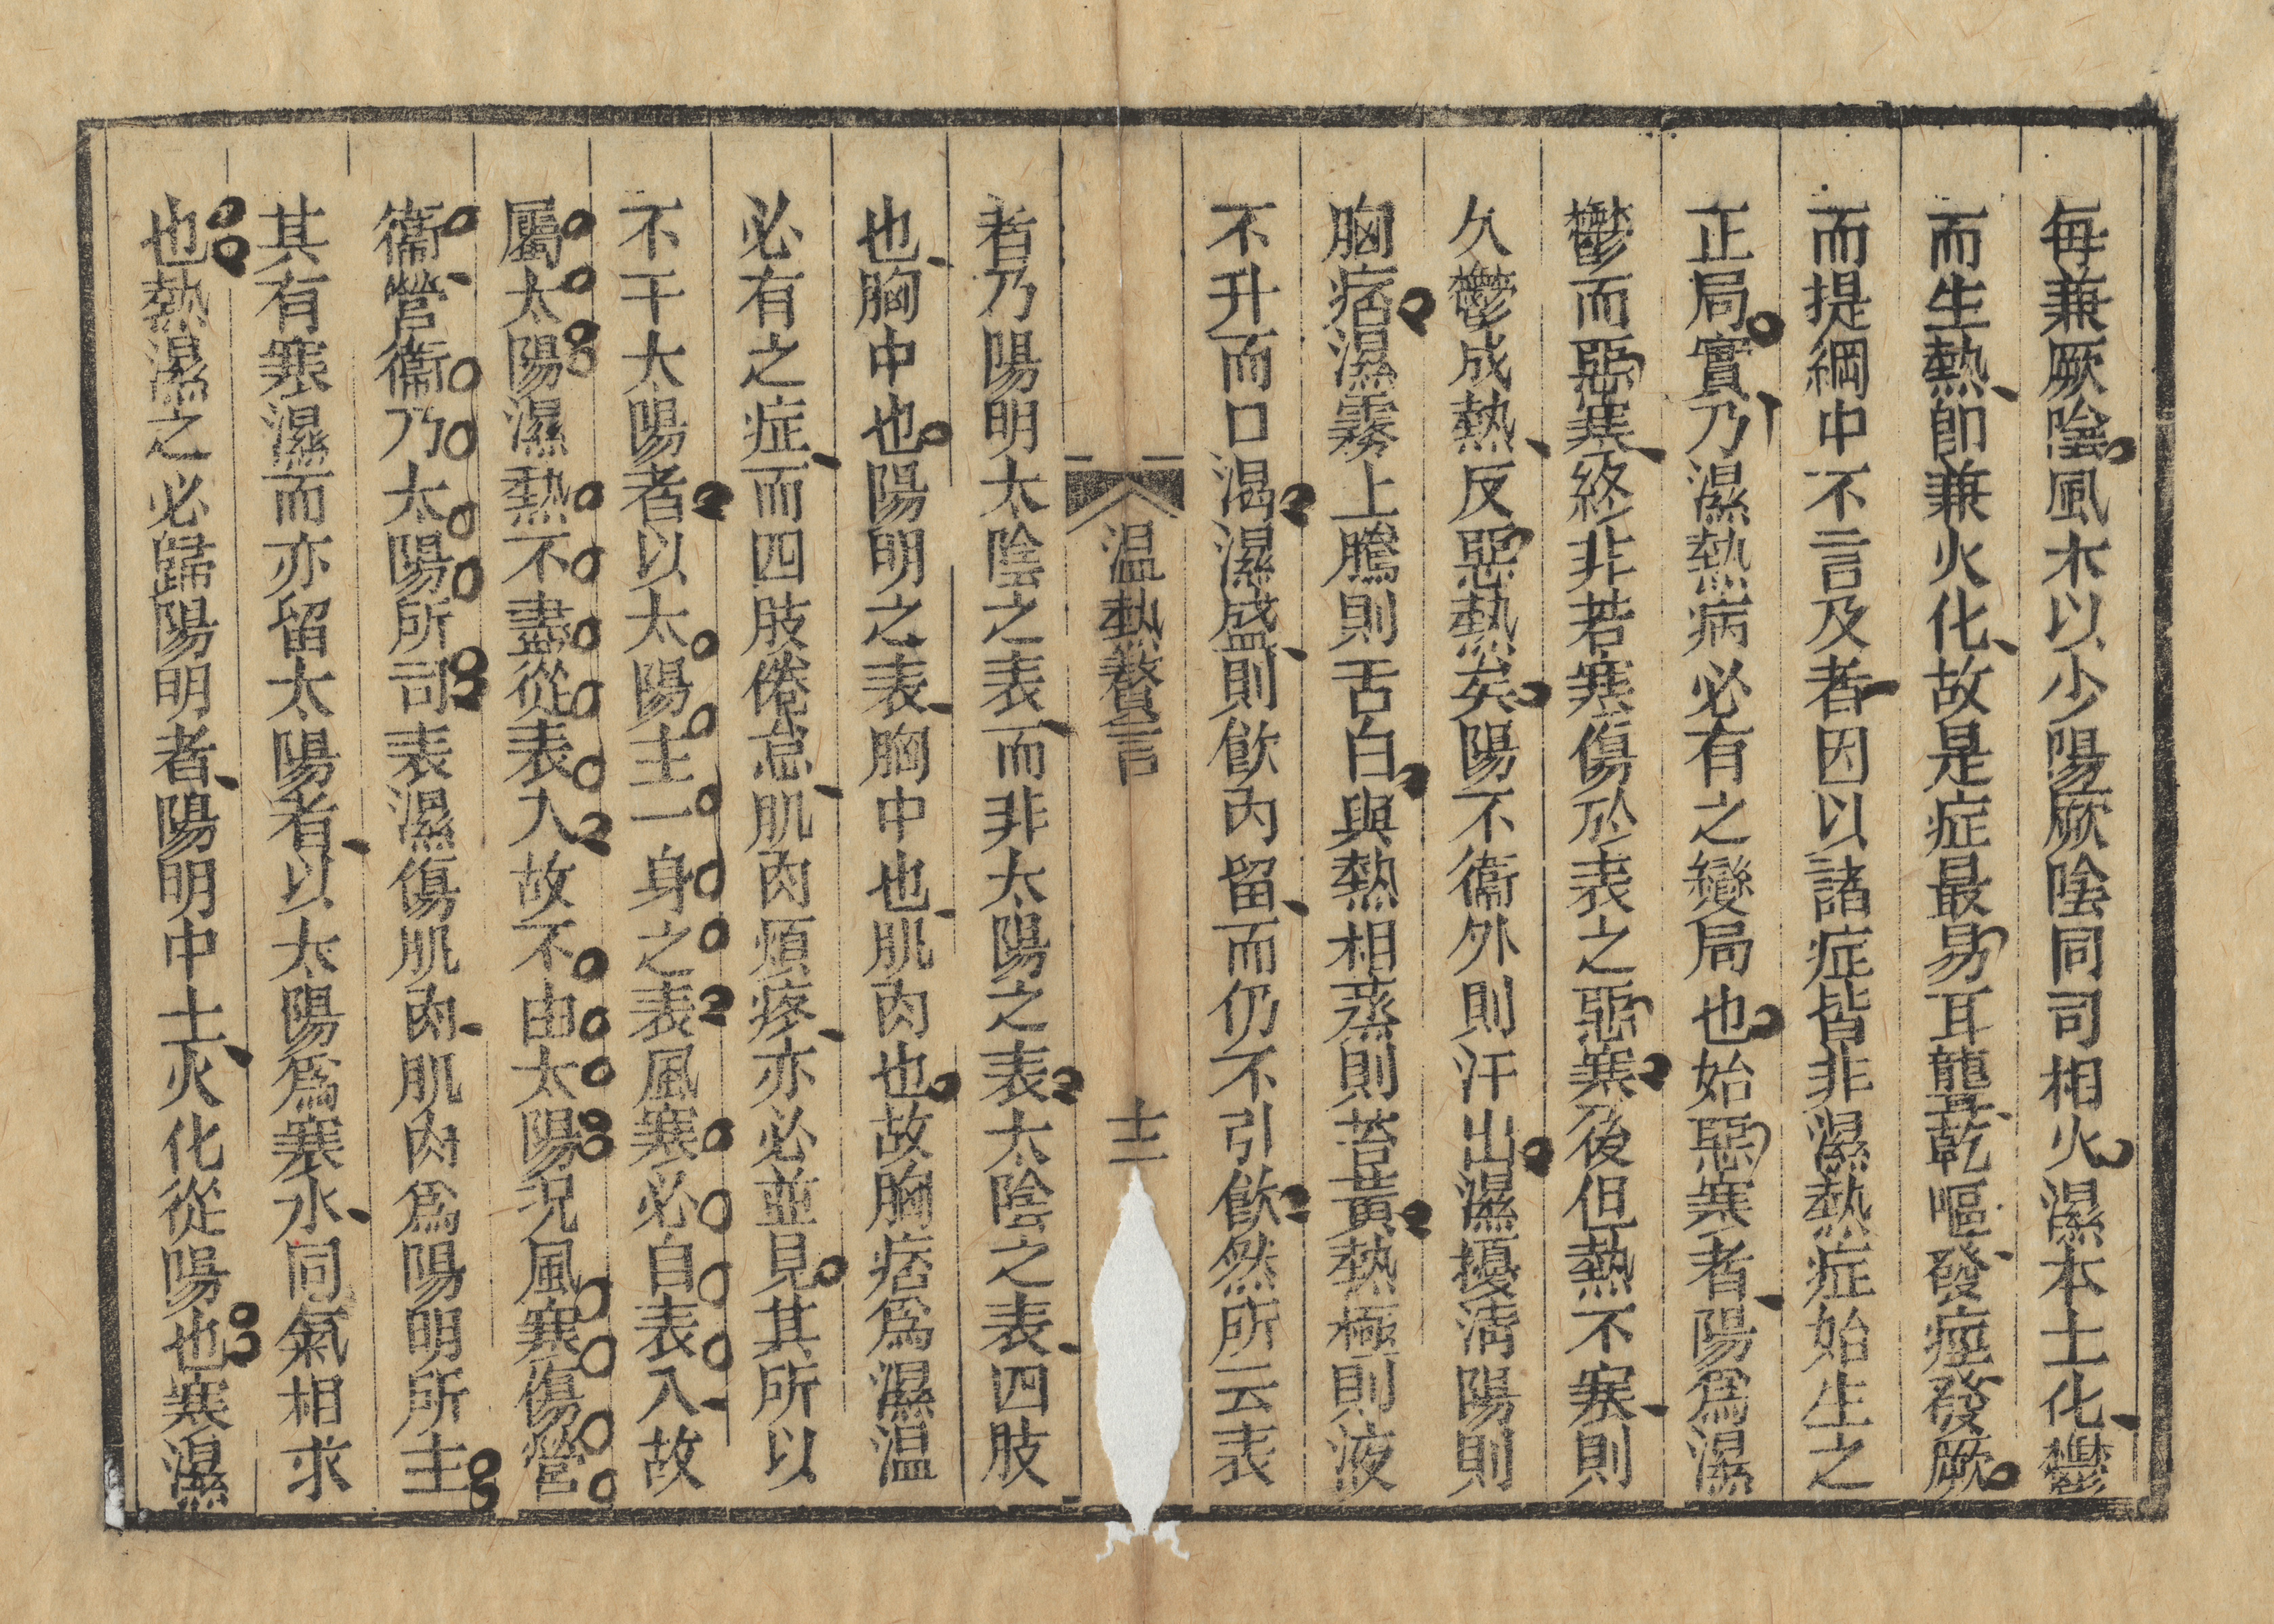 每兼厥陰風木以少陽厥陰同司相火濕本土化鬱
而生熱卽兼火化故是症最易耳聾乾嘔發痙發厥
而提綱中不言及者因以諸症皆非濕熱症始生之
正局實乃濕熱病必有之變局也始惡寒者陽爲濕
鬱而惡寒終非若寒傷於表之惡寒後但熱不寒則
久鬱成熱反惡熱矣陽不衞外則汗出濕擾淸陽則
胸痞濕霧上騰則舌白與熱相蒸則苔黃熱極則液
不升而口渴濕盛則飮內留而仍不引飮然所云表
温熱贅言
十二
者乃陽明太陰之表而非太陽之表太陰之表四肢
也胸中也陽明之表胸中也肌肉也故胸痞爲濕温
必有之症而四肢倦怠肌肉煩疼亦必並見其所以
不干太陽者以太陽主一身之表風寒必自表入故
屬太陽濕熱不盡從表入故不由太陽況風寒傷營
衞營衞乃太陽所司表濕傷肌肉肌肉爲陽明所主
其有寒濕而亦留太陽者以太陽爲寒水同氣相求
也熱濕之必歸陽明者陽明中土火化從陽也寒濕